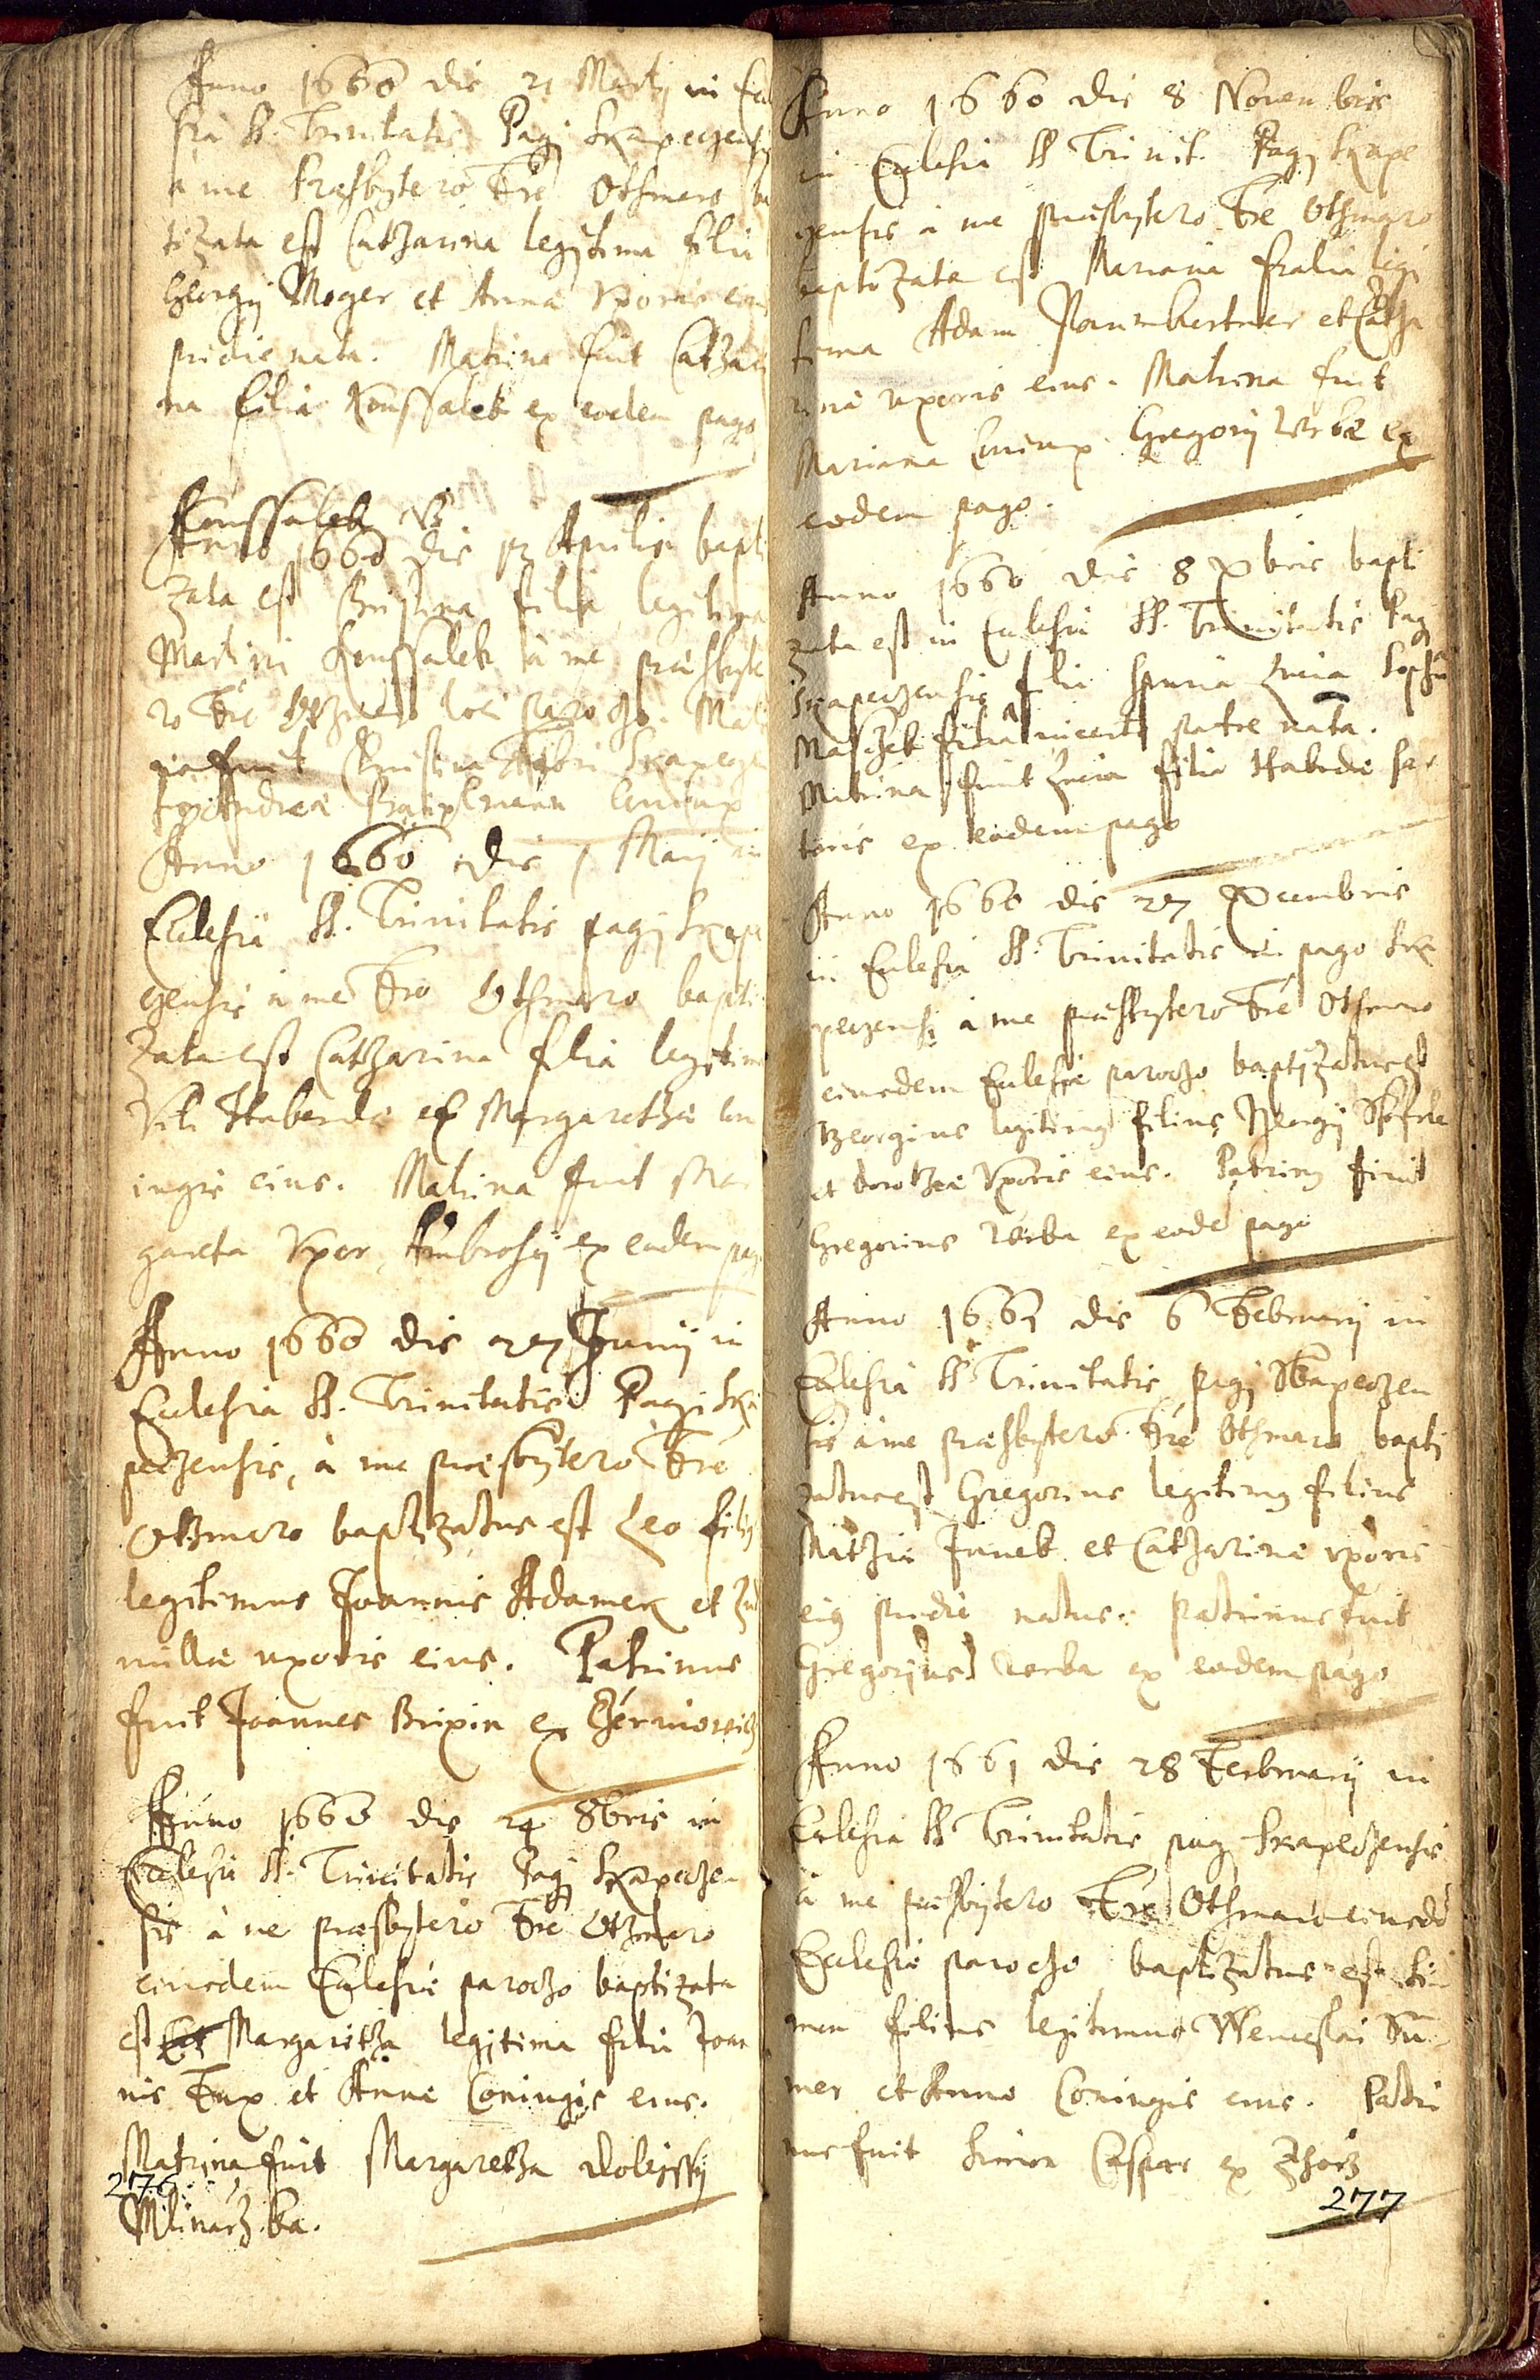 Anno 1660 die 21 Martij in Eccle
sia SS. Trinitatis Pagi Skapecensis
a me Præsbytero Fre Othmaro ba
tizata est Catharina legitima filia
Georgij Moger et Annæ Vxoris eius
pridie nata. Matrina fuit Catha
na filia Koussalek ex eodem pago
Koussalek
Anno 1660 die 12 Aprilis bapti
zata est Cristina filia legitima
Martini Koussalek à me præsbyte
ro Fre Othmaro loci parocho. Matri
na fuit Christina
Andreæ coniunx
Anno 1660 die 1 Maij in
Ecclesia SS. Trinitatis pagj Skape
censis à me Fre Othmaro bapti
zata est Catharina filia legitima
Viti Haberda et Margarethæ con
iugis eius. Matrina fuit Mar
gareta Vxor Ambrosij ex eodem pago
Anno 1660 die 27 Junij in
Ecclesia SS. Trinitatis Pagi Ska
peczensis, à me præsbytero Fre
Othmaro baptizatus est Leo filius
legitimus Joannis Adamek et Lud
millæ uxoris eius. Patrinus
fuit Joannes Brixin ex
Anno 1660 die 24 8bris in
Ecclesia SS. Trinitatis Pagj Skapeczen
sis à me præsbytero Fre Othmaro
eiusdem Ecclesiæ parocho baptizata
est Margaretha legitima filia Joan
nis Fux et Annæ Coniugis eius.
Matrina fuit Margaretha Dolejssy
276
Mlinarzka.
Anno 1660 die 8 Nouenbris
in Ecclesia SS Trinit. Pagj Skape
censis à me præsbytero Fre Othmaro
baptizata est Mariana filia legi
tima Adam et Catha
rinæ uxoris eius. Matrina fuit
Mariana Coniunx Gregorij Vrba ex
eodem pago.
Anno 1660 die 8 Xbris bapti
zata est in Ecclesia SS. Trinitatis Pagj
Skapeczensis filia spuria Lucia Sophia
Maschek filia incerto patre nata.
Matrina fuit Lucia filia Haberdæ sar
toris ex eodem pago
Anno 1660 die 27 Xcembris
in Ecclesia SS. Trinitatis in pago Ska
peczensi à me præsbytero Fre Othmaro
eiusdem Ecclesiæ parocho baptizatus est
Georgius legitimus filius Georgij
et Dorotheæ Vxoris eius. Patrinus fuit
Gregorius Verba ex eode pago
Anno 1661 die 6 Februarij in
Ecclesia SS Trinitatis pagj Skapeczen
sis à me præsbytero Fre Othmaro bapti
zatus est Gregorius legitimus filius
Mathiæ Junek et Catharinæ uxoris
eius pridie natus. patrinus fuit
Gregorius Verba ex eodem pago
Anno 1661 die 28 Februarij in
Ecclesia SS Trinitatis pagj Skapeczensis
à me præsbytero Fre Othmaro eiusde
Ecclesiæ parocho baptizatus est Si
mon filius legitimus Wenceslai Su
mer et Annæ Coniugis eius. Patri
nus fuit Simon Caspar ex Zhorz
277